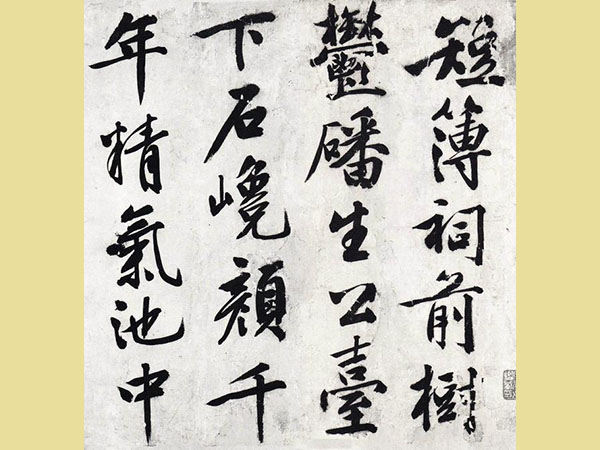 短簿祠前樹
鬱磻生公臺
下石巉顔千
年精氣池中